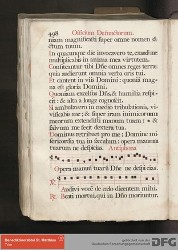 498 Officium Defunctorum.
niam magnificasti super omne nomen
ctum tuum.
In quacunque die invocavero te, exaudi me
multiplicabis in anima mea virtutem.
Confiteantur tibi Dñe omnes reges terræ
quia audierunt omnia verba oris tui.
Et cantent in viis Domini: quoniam mag-
na est gloria Domini.
Quoniam excelsus Dñs, & humilia respi-
cit: & alta a longe cognoscit.
Si ambulavero in medio tribulationis, vi-
vificabis me: & super iram inimicorum
meorum extendisti manum tuam: &
salvum me fecit dextera tua.
Dominus retribuet pro me: Domine mi-
sericordia tua in sæculum: opera manuum
tuarum ne despicias. Antiphona
Opera manuum tuarū Dñe ne despicias.
Audivi vocē de cœlo dicentem mihi.
Beati mortui, qui in Dño moriuntur.
DFG